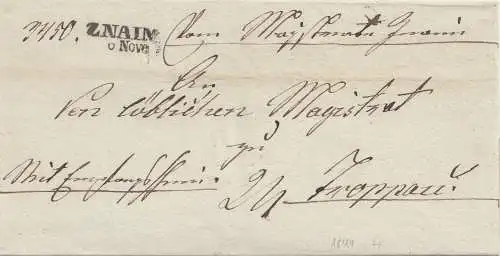 3450. ZNAIM Vom Magistrate Znaim
6 Nove
An
Den löblichen Magistrat
zu
Mit Empfangsschein. Troppau.
1844